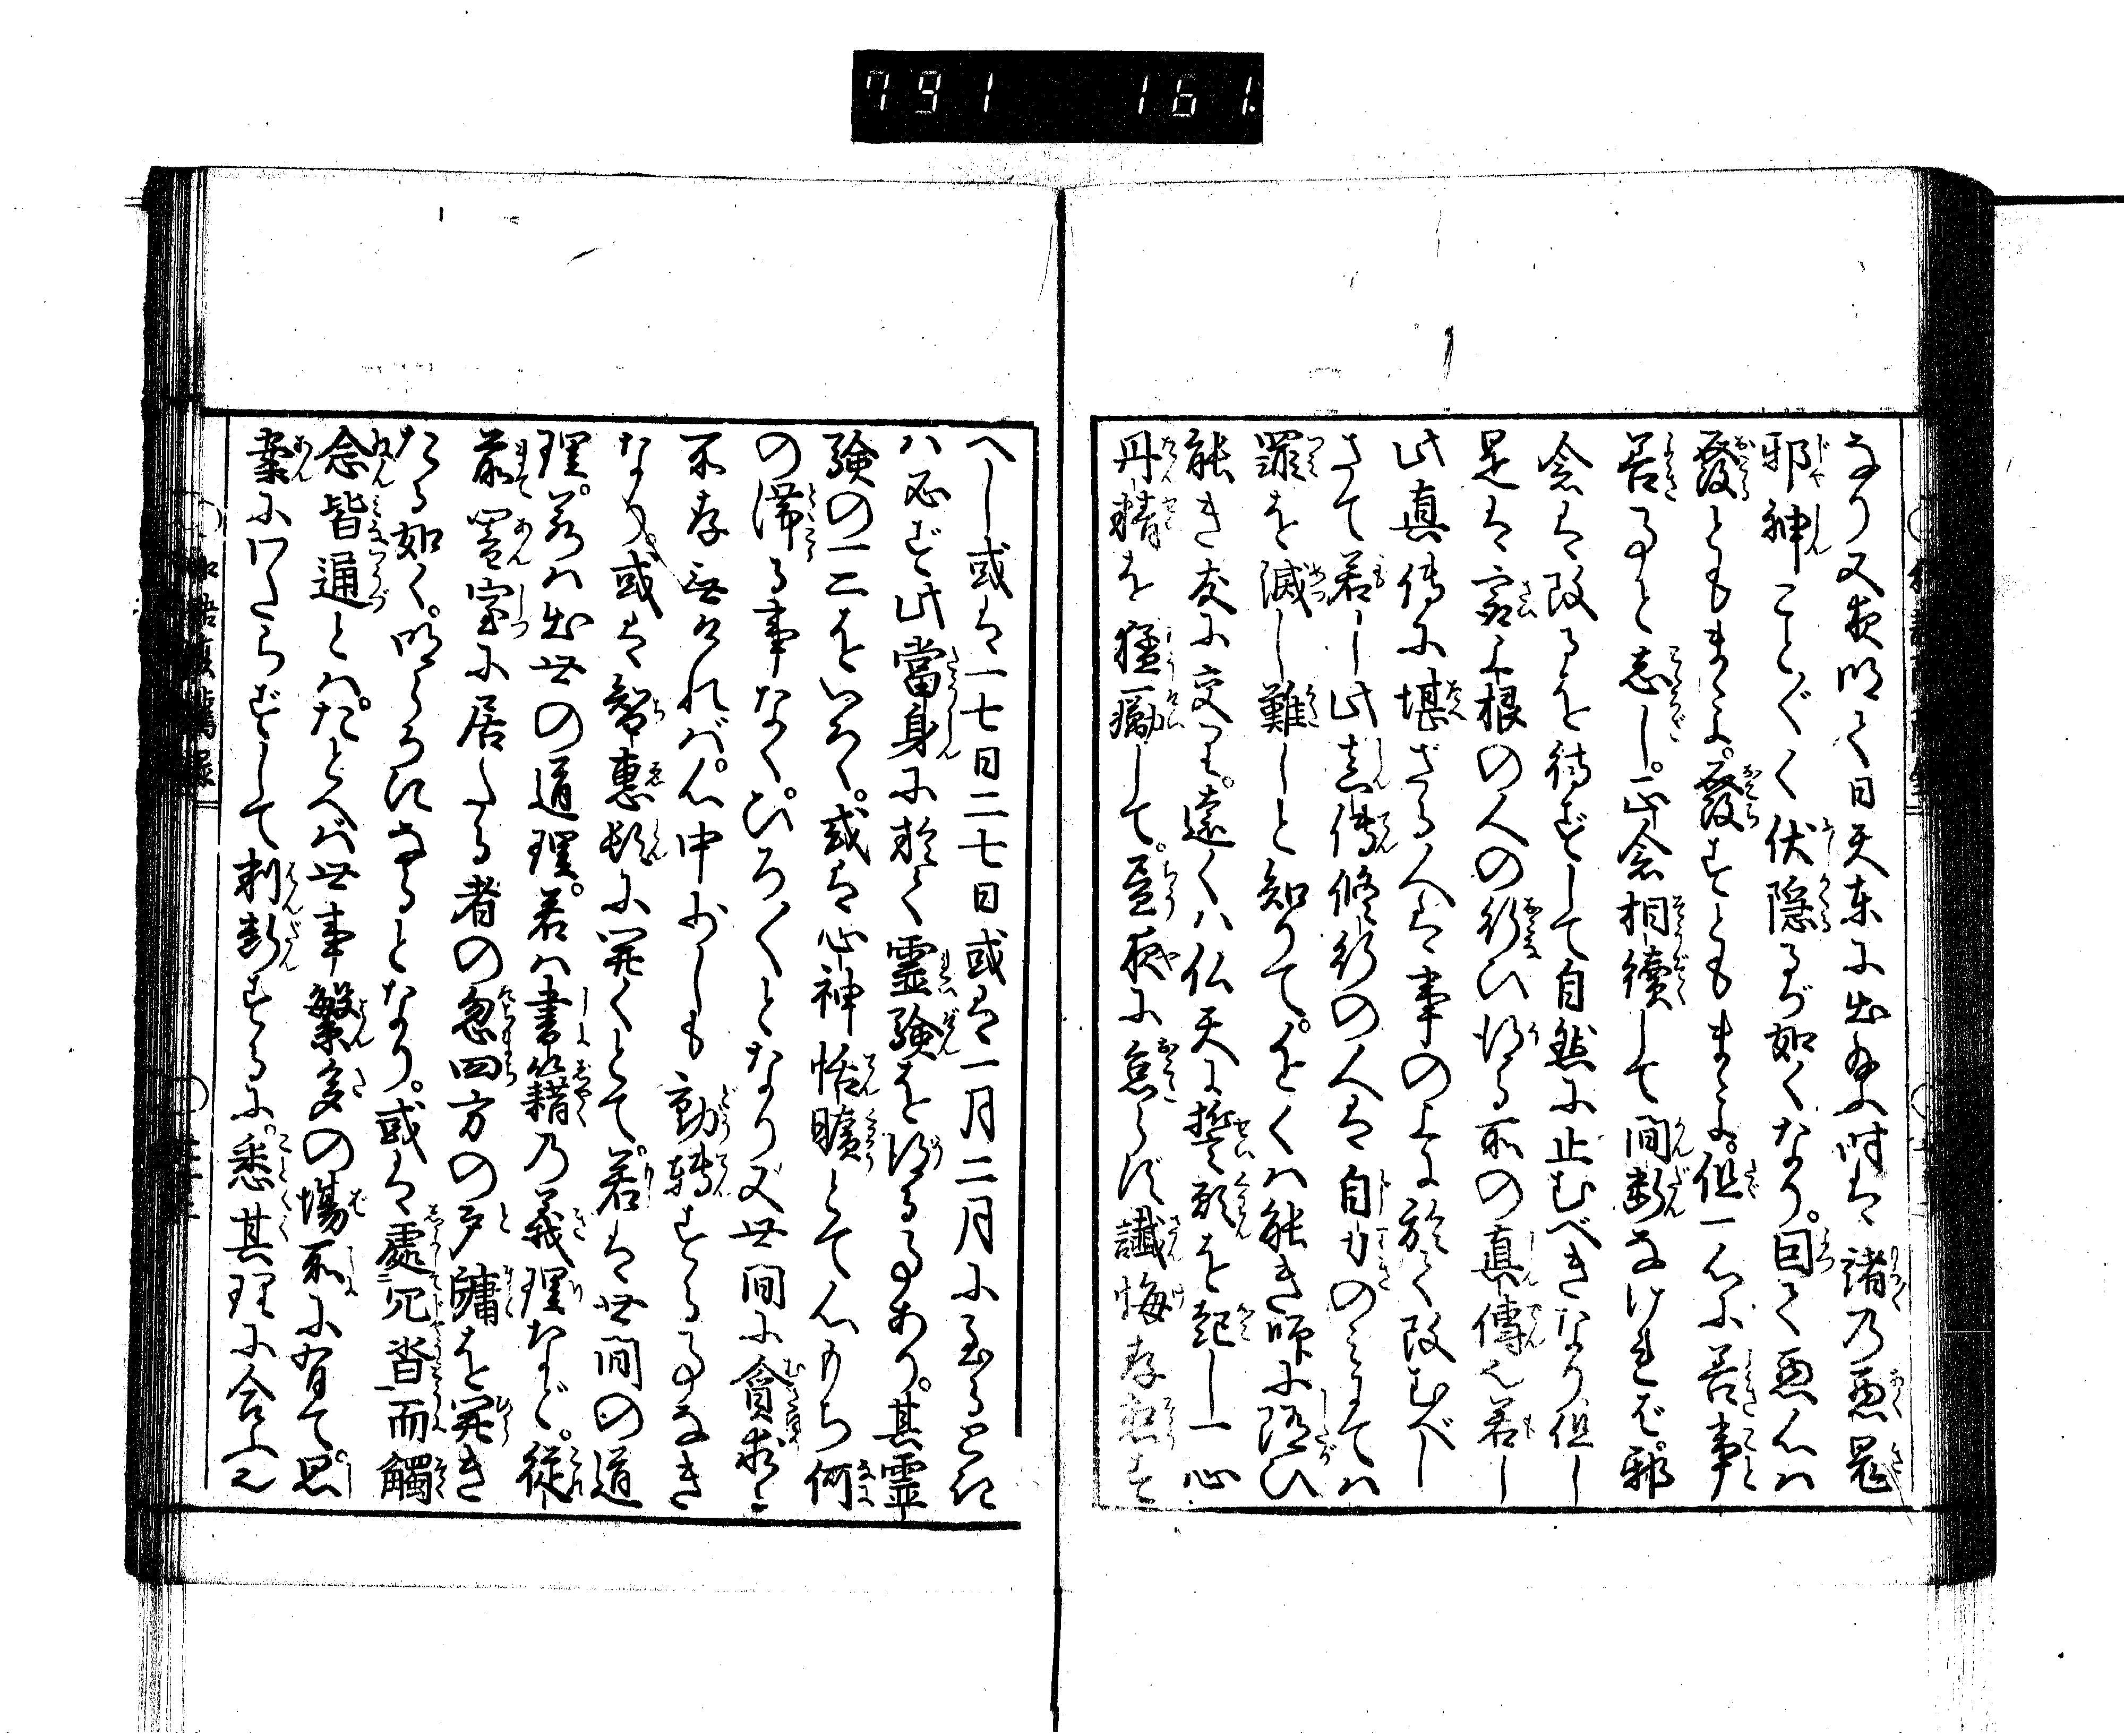 791 161
なり又夜明て日天東に出給ふ時は諸の悪鬼
邪神こと〲く伏隠るが如くなり。因て悪心は
發ともまゝよ。發ずともまゝよ。但一心に善事
善ると志し。正念相續して間断なければ。邪
念は改るを待ずして自然に止むべきなり但し
是は上根の人の行ひ得る所の真傳也若し
此真傳に堪ざる人は事の上に於て改むべし
さて若し此真傳修行の人は自力のみにては
罪を滅し難しと知りて。近くは能き師に随ひ
能き友に交り。遠くは仏天に誓願を起し一心
丹精を猛勵して。昼夜に怠らず讖悔存想す
へし或は一七日二七日或は一月二月に至るときは
ハ必ず此當身に於て霊験を得る事あり。其霊
験の一二をいはく。或は心神恬曠として心のうち何
の滞る事なく。ひろ〱となり又世間に貪求
不存無ければ。心中少しも動轉する事なき
なり。或は智惠頓に開くとて。若は世間の道
理。若は出世の道理。若は書籍乃義理など。従
前暗室に居たる者の忽四方の戸牖を開き
たる如く。明らかになるとなり。或は處冗沓而觸
念皆通とは。たとへば世事繁多の場所に有て。思
案にわたらずして判断するに。悉其理に合ふ